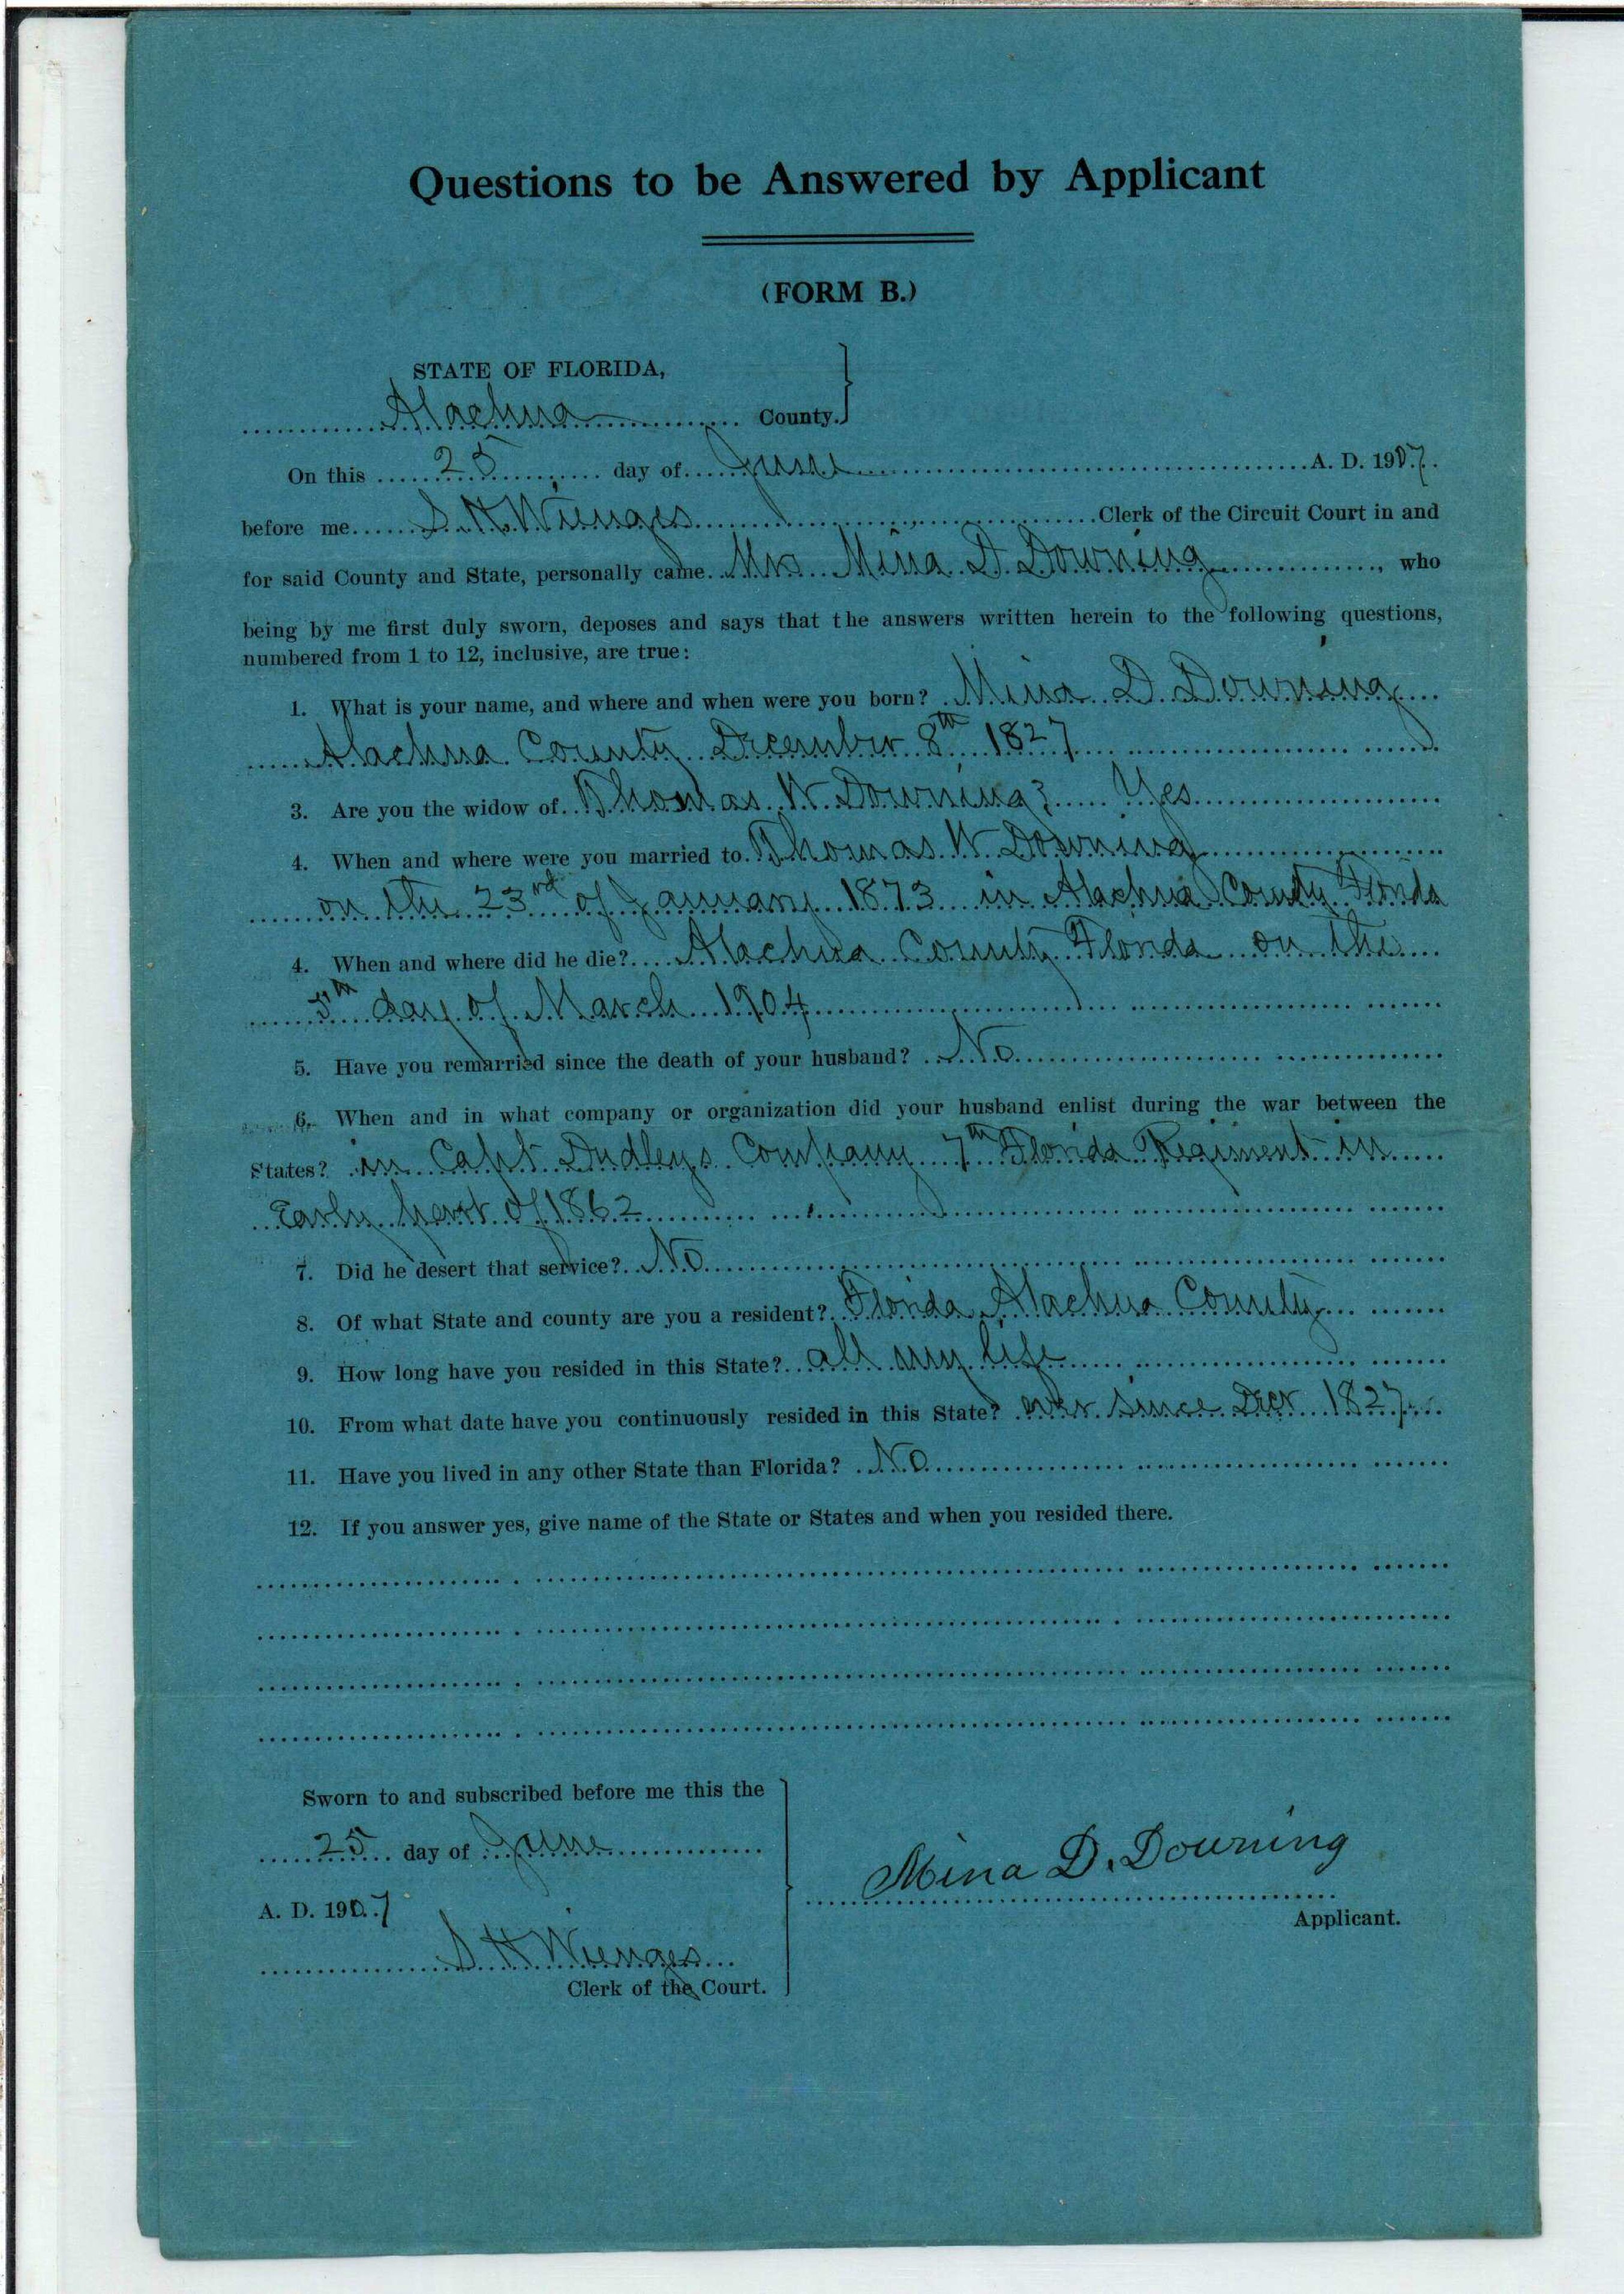 Questions to be Answered by Applicant
(FORM B.)
STATE OF FLORIDA,
Alachua County.
On this 25 day of June A. D. 1907.
before me S. H. Wienges Clerk of the Circuit Court in and
for said County and State, personally came Mrs Mina D. Downing, who
being by me first duly sworn, deposes and says that the answers written herein to the following questions,
numbered from 1 to 12, inclusive, are true:
1. What is your name, and where and when were you born? Mina D. Downing
Alachua County December 8th 1827
3. Are you the widow of Thomas W. Downing? Yes
4. When and where were you married to Thomas W. Downing
on the 23rd of January 1873 in Alachua County Florida
4. When and where did he die? Alachua County Florida on the
5th day of March 1904
5. Have you remarried since the death of your husband? No
6. When and in what company or organization did your husband enlist during the war between the
States? in Capt Dudleys Company 7th Florida Regiment in
Early part of 1862
7. Did he desert that service? No
8. Of what State and county are you a resident? Florida Alachua County
9. How long have you resided in this State? all my life
10. From what date have you continuously resided in this State? ever since Decr 1827
11. Have you lived in any other State than Florida? No
12. If you answer yes, give name of the State or States and when you resided there.
Sworn to and subscribed before me this the
25 day of June
A. D. 1907
S H Wienges
Clerk of the Court.
Mina D. Downing
Applicant.